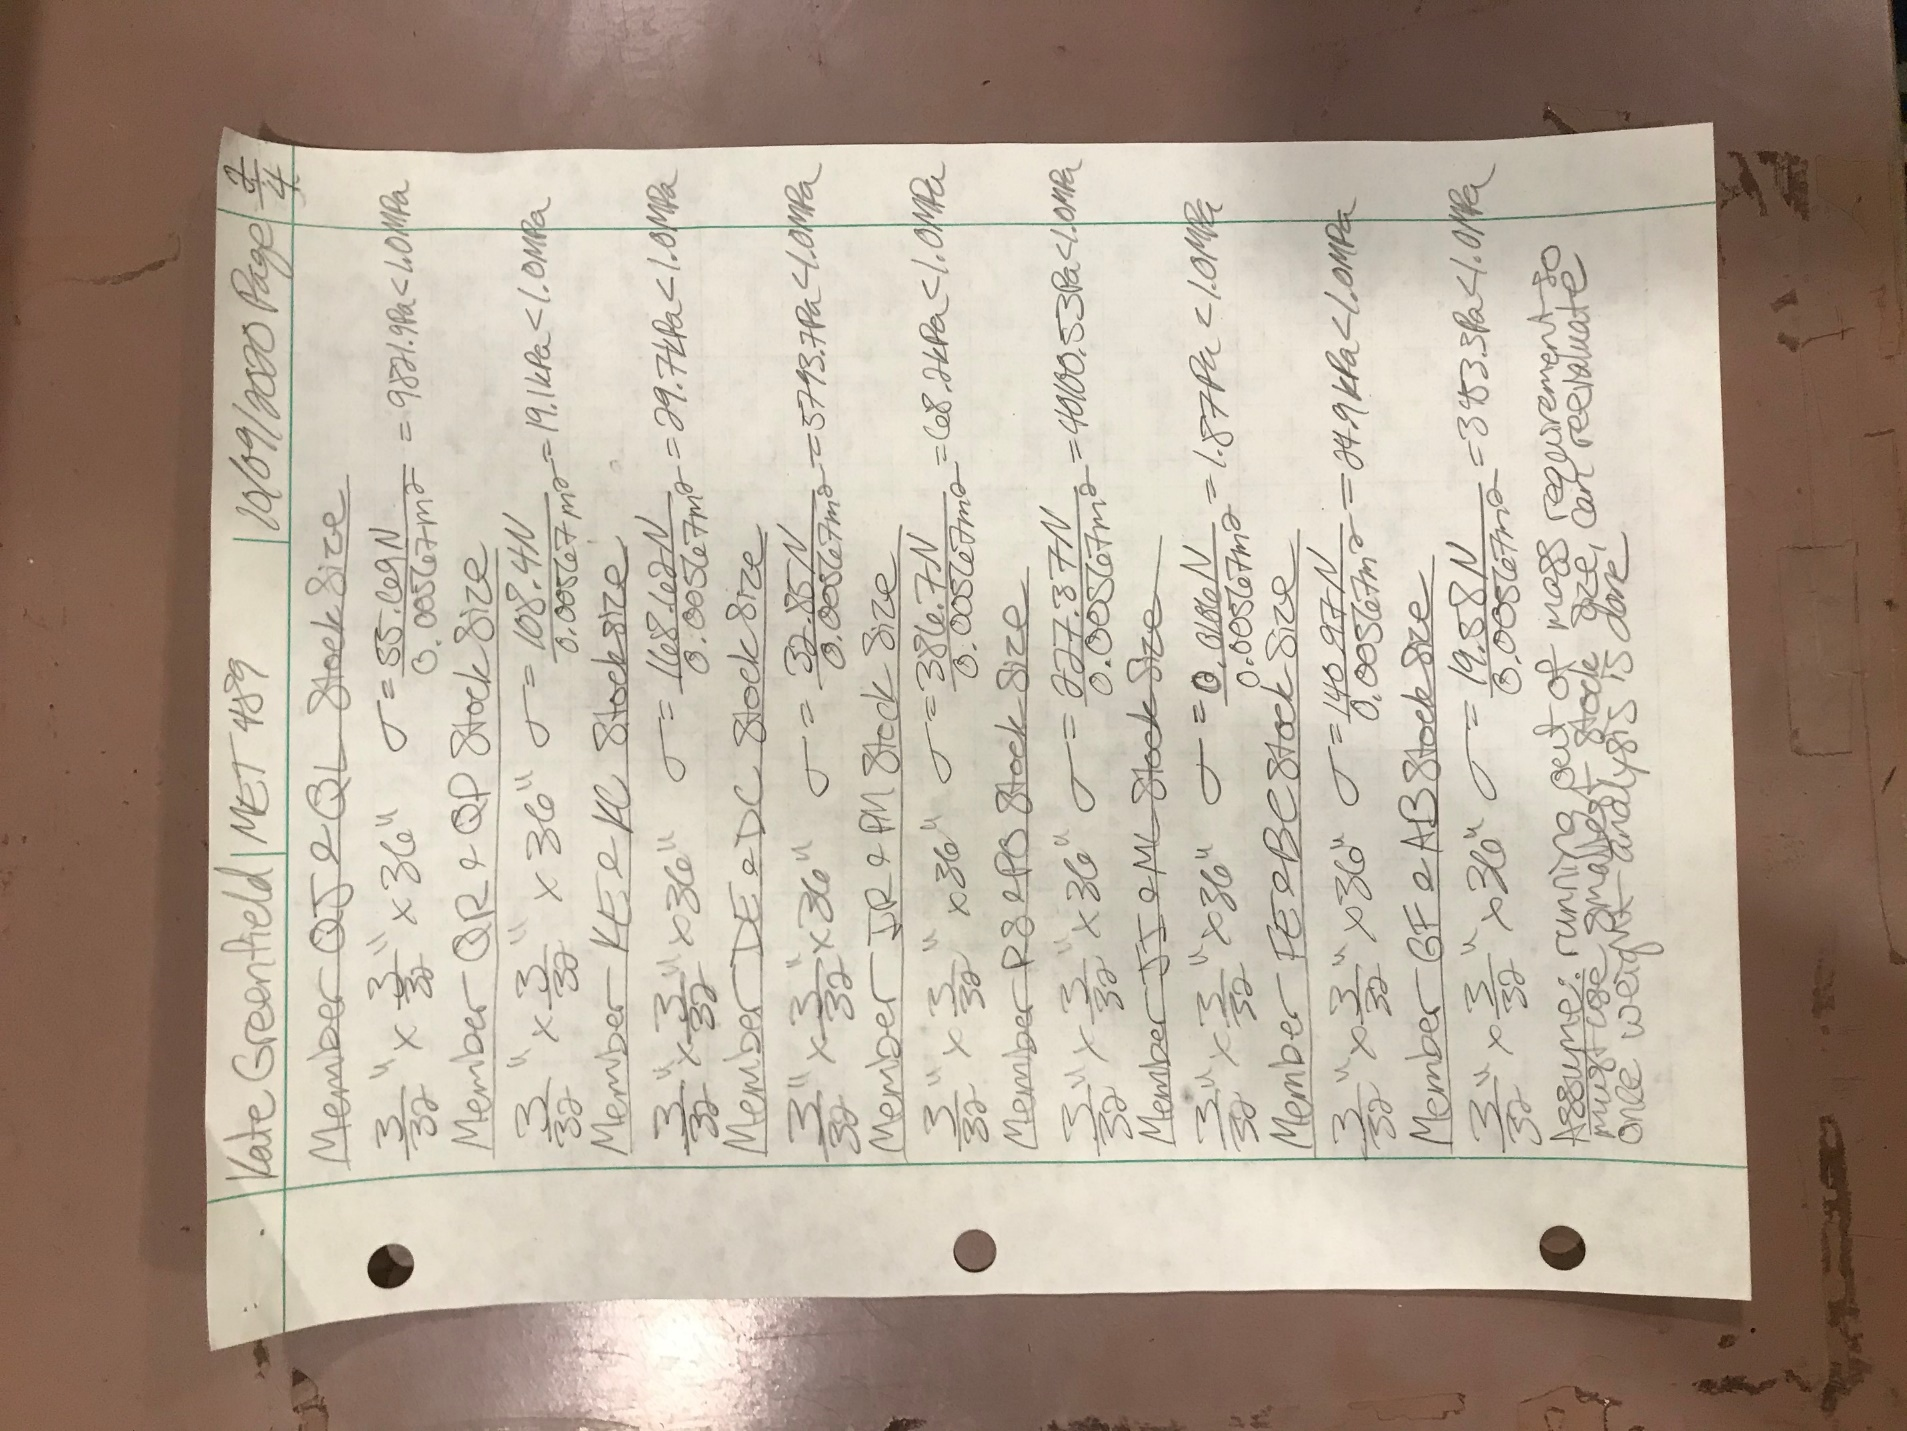 Kate Greenfield | MET 489 | 10/09/2020 Page 2/4
Member QJ & QL Stock Size
3/32" x 3/32" x 36" σ = 55.69N / 0.00567m² = 9821.9Pa < 1.0MPa
Member QR & QP Stock Size
3/32" x 3/32" x 36" σ = 108.4N / 0.00567m² = 19.1kPa < 1.0MPa
Member KE & KC Stock Size
3/32" x 3/32" x 36" σ = 168.62N / 0.00567m² = 29.74kPa < 1.0MPa
Member DE & DC Stock Size
3/32" x 3/32" x 36" σ = 32.85N / 0.00567m² = 5793.7Pa < 1.0MPa
Member JR & PM Stock Size
3/32" x 3/32" x 36" σ = 386.7N / 0.00567m² = 68.2kPa < 1.0MPa
Member RS & PB Stock Size
3/32" x 3/32" x 36" σ = 227.37N / 0.00567m² = 40100.53Pa < 1.0MPa
Member JI & ML Stock Size
3/32" x 3/32" x 36" σ = / 0.00567m² = 1.87Pa < 1.0MPa
Member FE & BC Stock Size
3/32" x 3/32" x 36" σ = 140.97N / 0.00567m² = 24.9kPa < 1.0MPa
Member GF & AB Stock Size
3/32" x 3/32" x 36" σ = 19.58N / 0.00567m² = 3453.3Pa < 1.0MPa
Assume: running out of mass requirement so
must use smallest stock size, can reevaluate
once weight analysis is done